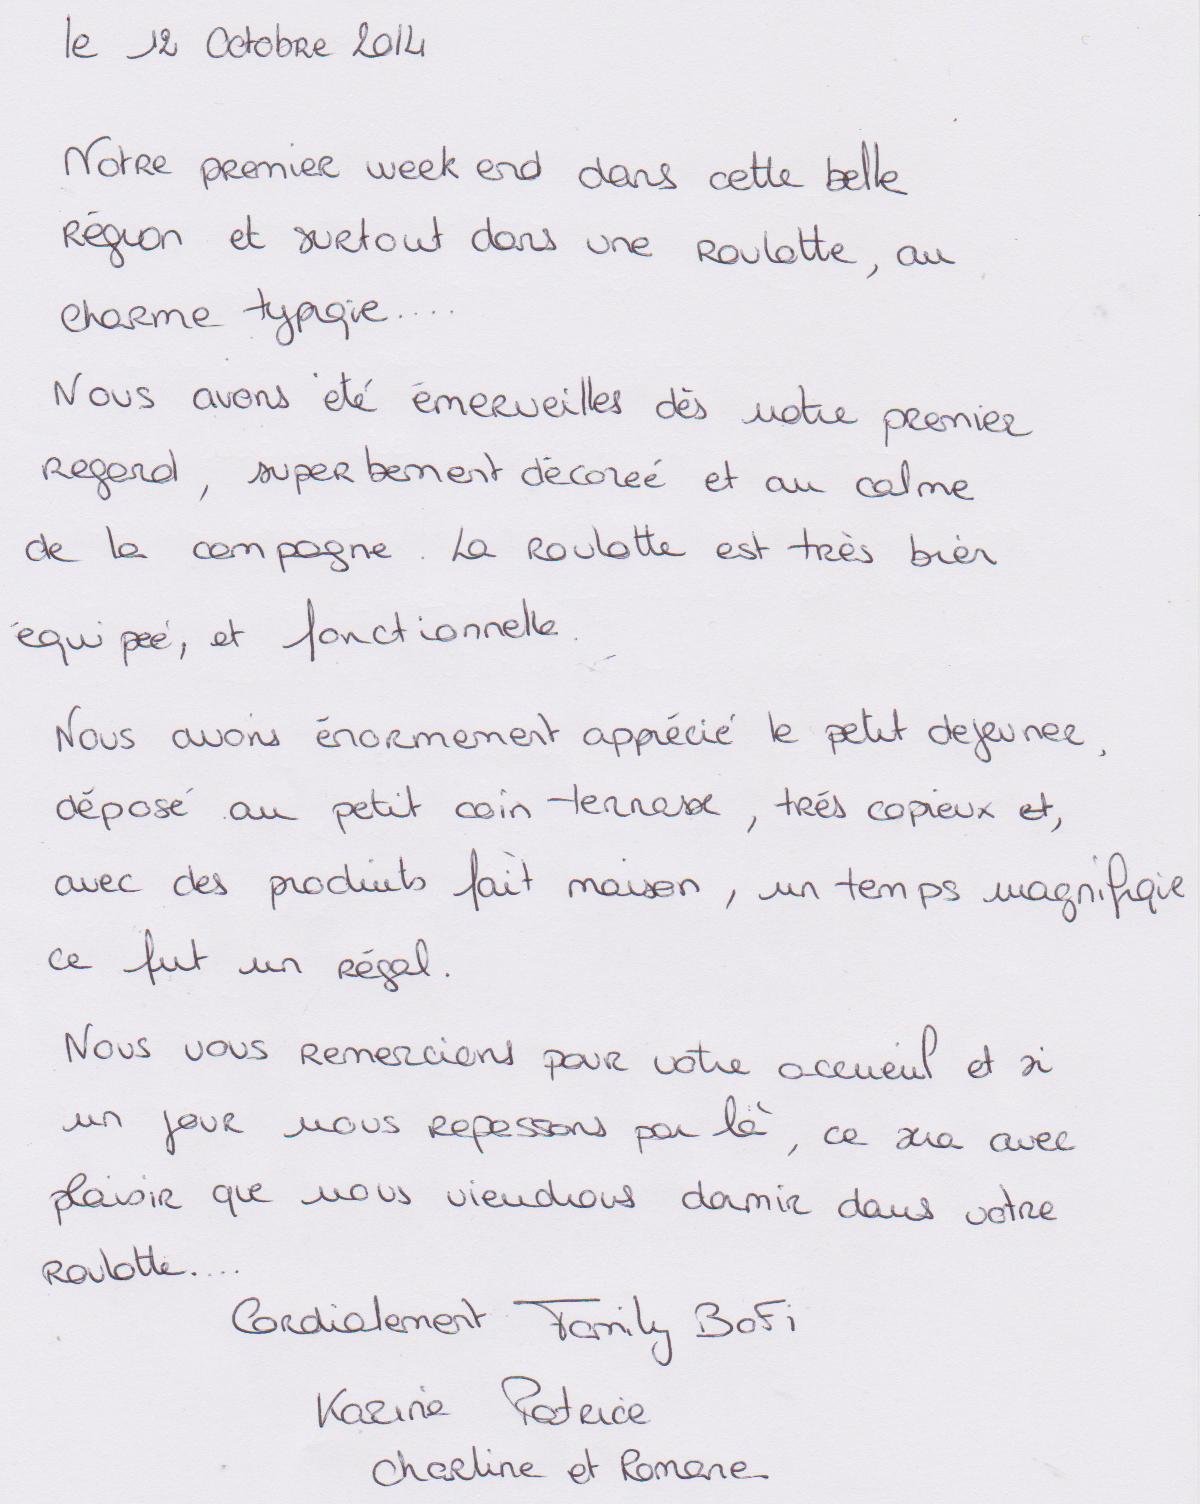 le 12 Octobre 2014
Notre premier week end dans cette belle
Région et surtout dans une Roulotte, au
charme typique....
Nous avons été émerveilles dès notre premier
Regard, superbement décoreé et au calme
de la campagne. La Roulotte est très bien
équipeé, et fonctionnelle.
Nous avons énormement apprécié le petit dejeuner,
déposé au petit coin terrasse, trés copieux et,
avec des produits fait maison, un temps magnifique
ce fut un régal.
Nous vous remercions pour votre acceueul et si
un jour nous repassons par là, ce sera avec
plaisir que nous viendrons dormir dans votre
Roulotte....
Cordialement Family BoFi
Karine Patrice
Charline et Romane